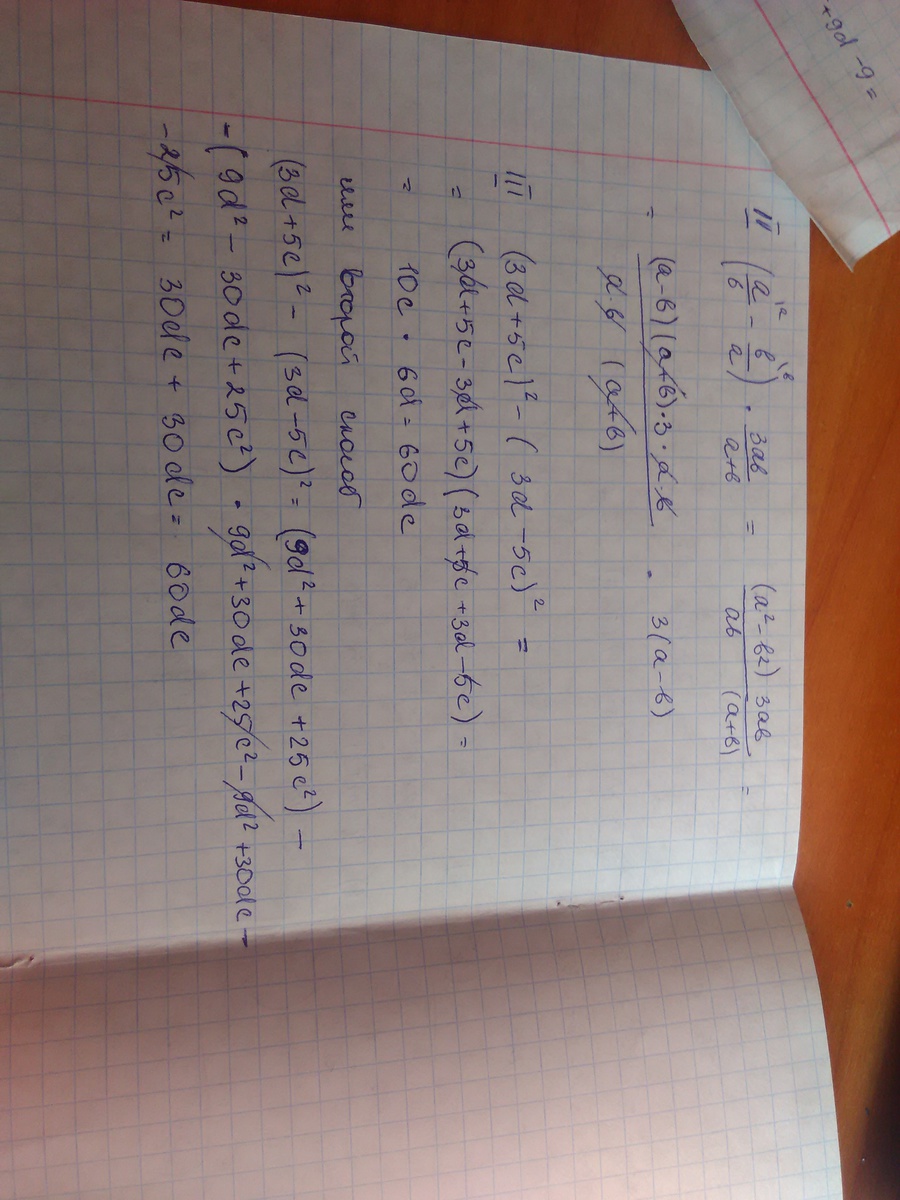 +9d -9 =
II (a/в \a - в/a \в) · 3aв/a+в = (a²-в²) 3aв / aв (a+в) =
= (a-в)(a+в)·3·a·в / a·в (a+в) · 3(a-в)
III (3d+5c)² - (3d-5c)² =
= (3d+5c-3d+5c)(3d+5c+3d-5c) =
= 10c · 6d = 60dc
или второй способ
(3d+5c)² - (3d-5c)² = (9d²+30dc+25c²) -
-(9d²-30dc+25c²) · 9d²+30dc+25c²-9d²+30dc-
-25c² = 30dc + 30dc = 60dc